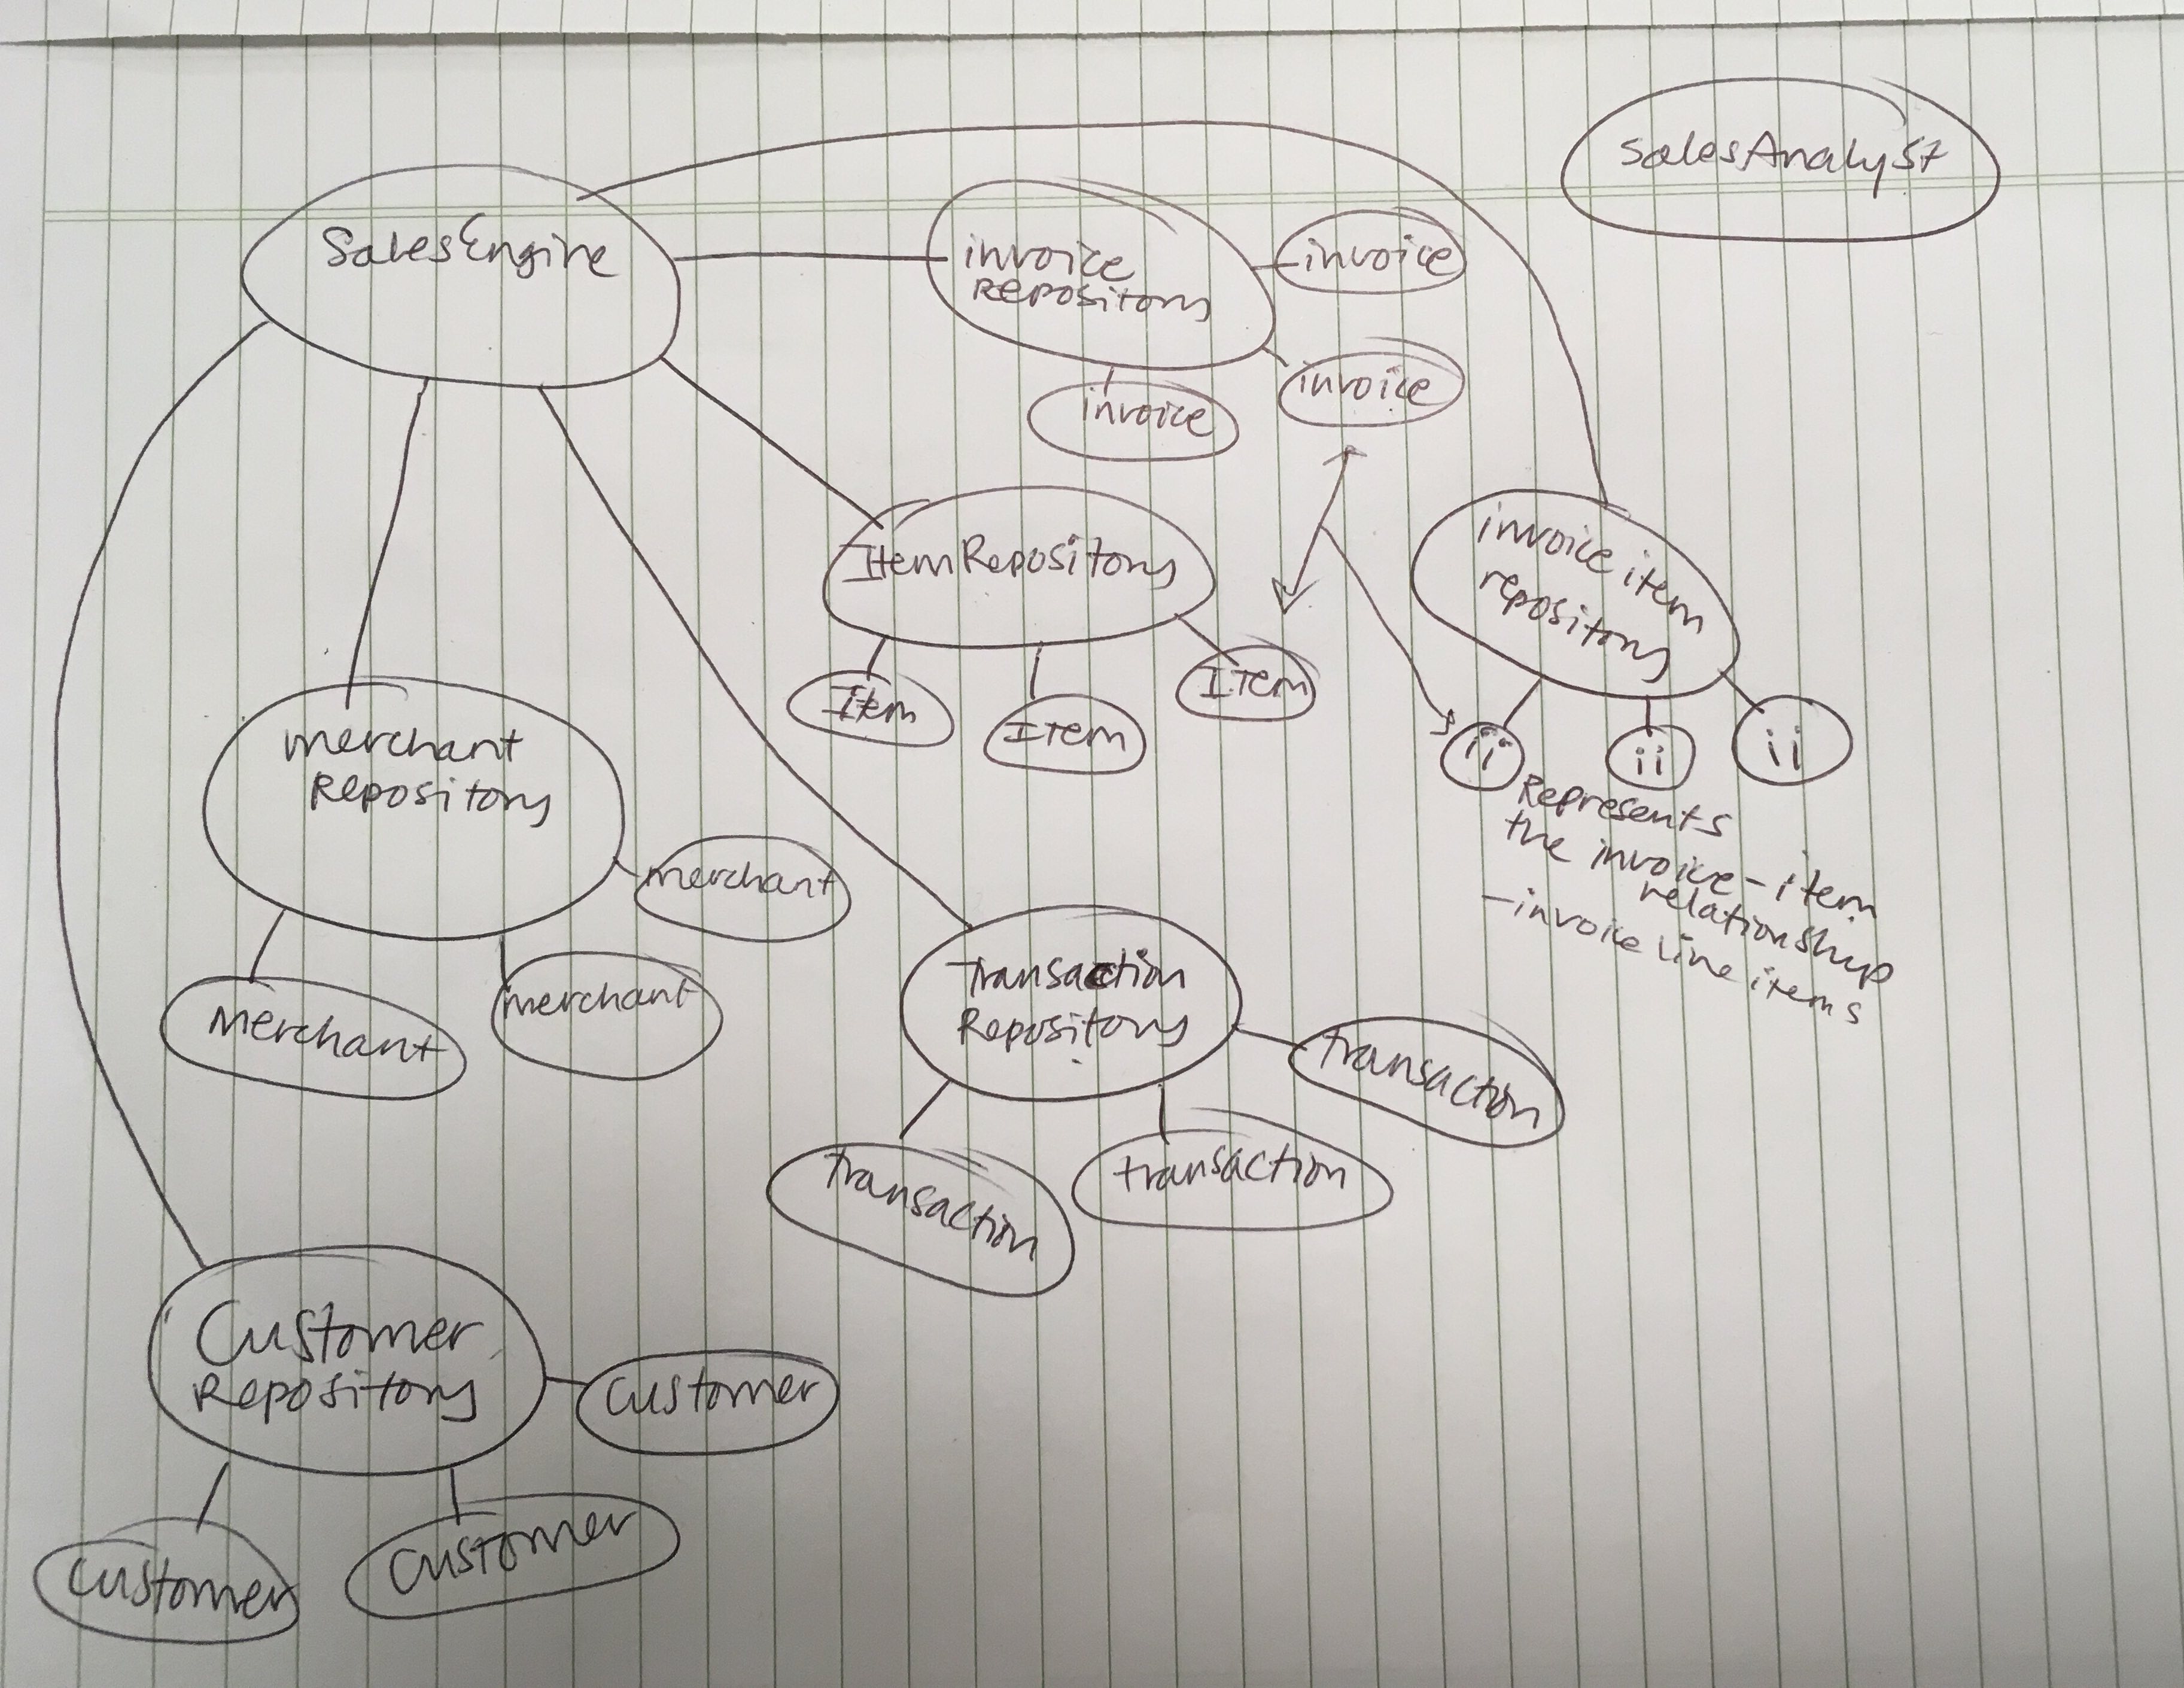 SalesAnalyst
SalesEngine
invoice
Repository
invoice
invoice
invoice
ItemRepository
Item
Item
Item
invoice item
repository
ii
ii
ii
Represents
the invoice-item
relationship
- invoice line items
merchant
Repository
merchant
merchant
Merchant
Transaction
Repository
Transaction
transaction
Transaction
Customer
Repository
Customer
Customer
Customer